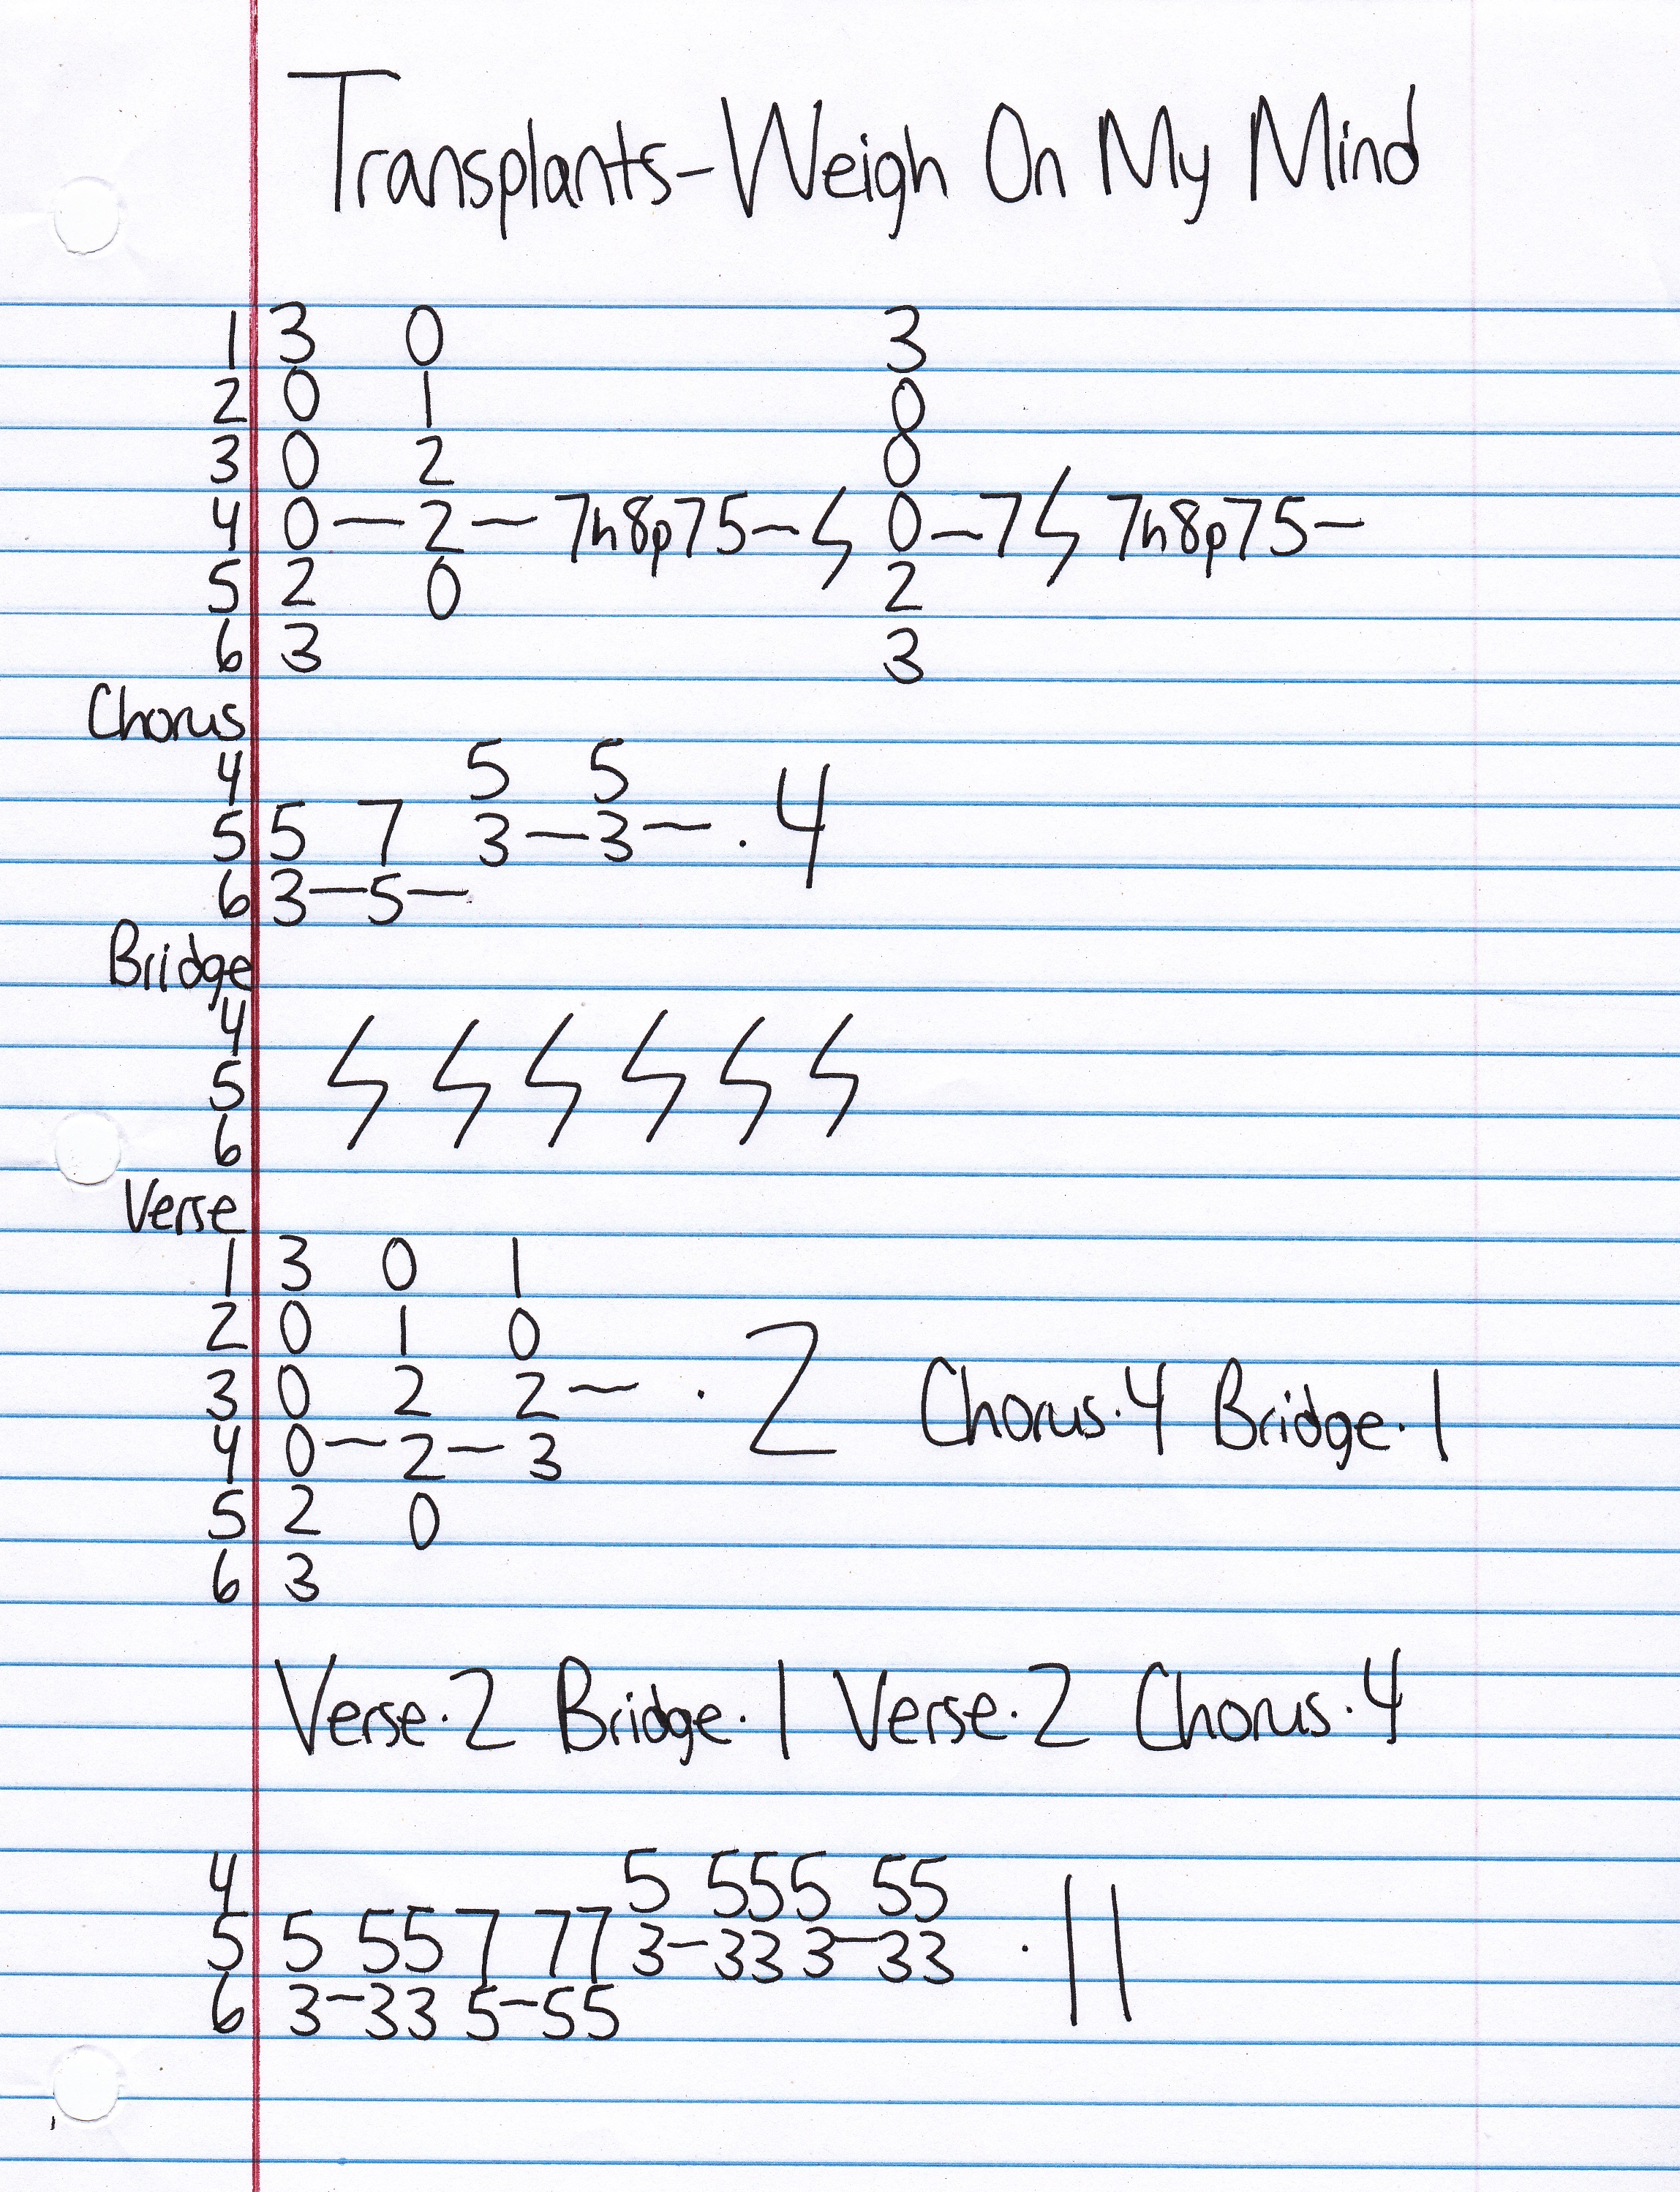 Transplants-Weigh On My Mind
1 3 0 3
2 0 1 0
3 0 2 0
4 0—2—7h8p75—ϟ 0—7ϟ 7h8p75—
5 2 0 2
6 3 3
Chorus
4 5 5
5 5 7 3—3— · 4
6 3—5—
Bridge
4
5 ϟ ϟ ϟ ϟ ϟ ϟ
6
Verse
1 3 0 1
2 0 1 0
3 0 2 2— · 2 Chorus·4 Bridge·1
4 0—2—3
5 2 0
6 3
Verse·2 Bridge·1 Verse·2 Chorus·4
4 5 555 55
5 5 55 7 77 3—33 3—33 · 11
6 3—33 5—55